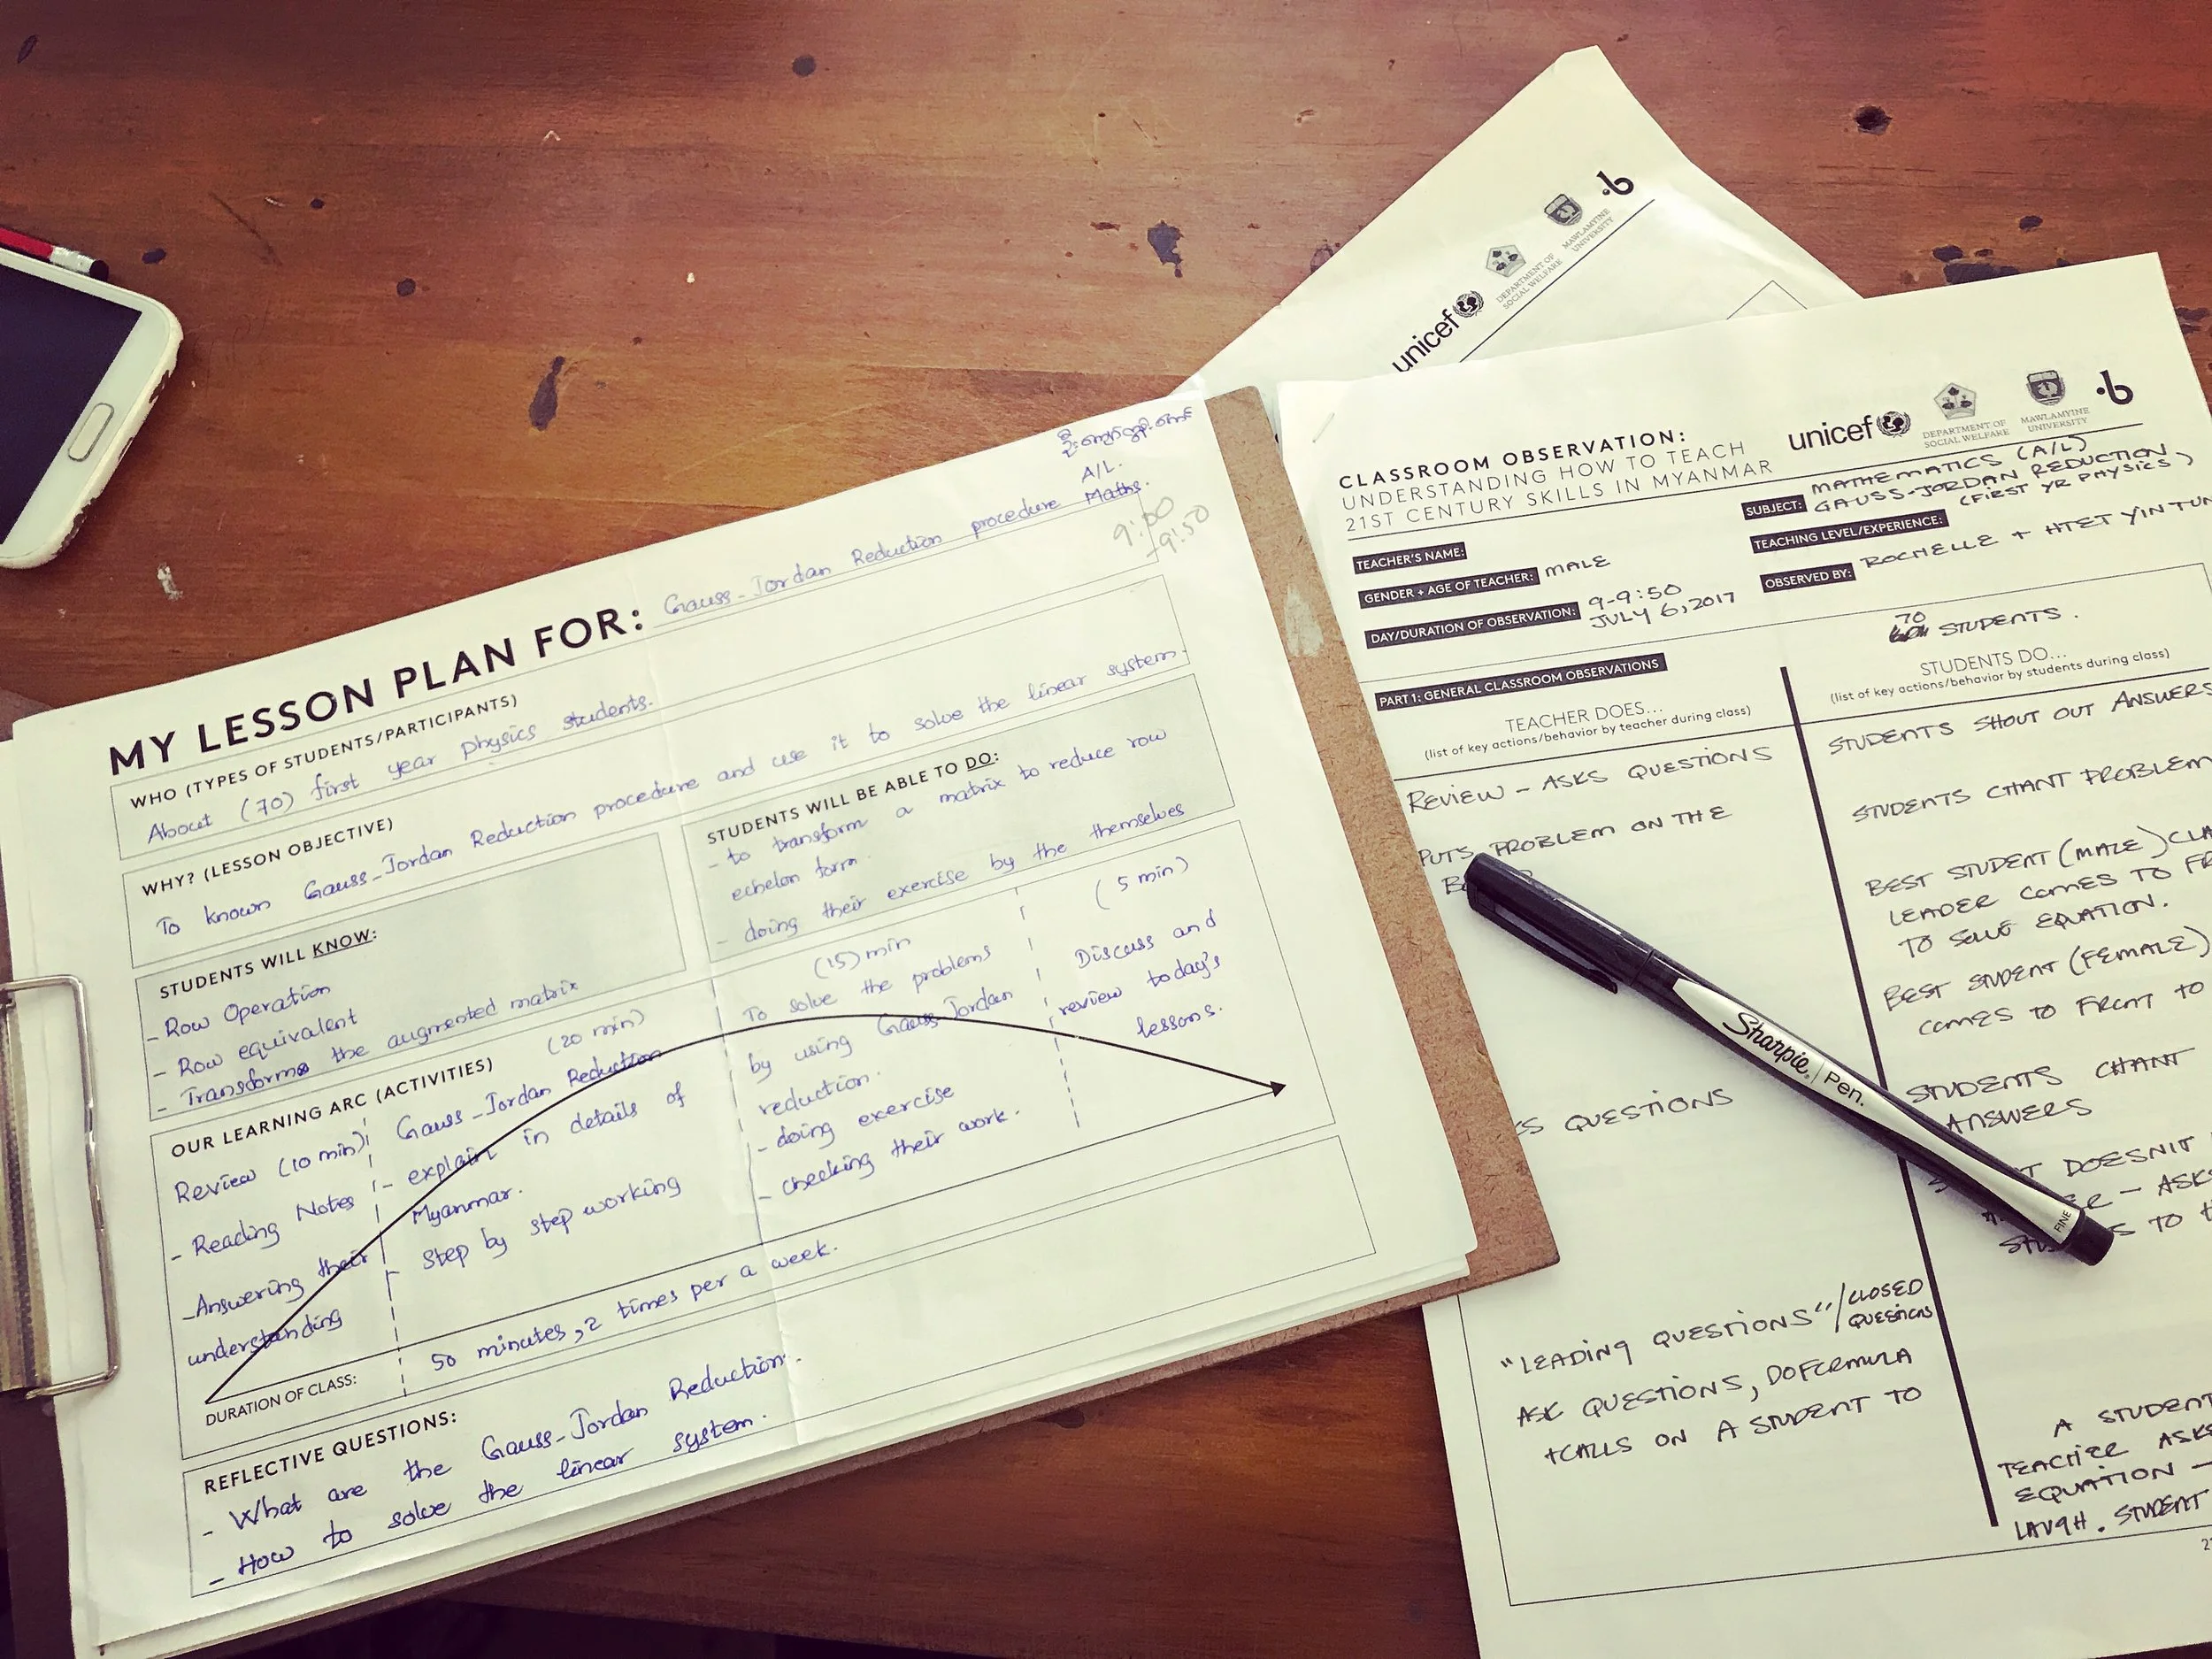 A/L.
Maths.
9:00
-9:50
MY LESSON PLAN FOR: Gauss-Jordan Reduction procedure
WHO (TYPES OF STUDENTS/PARTICIPANTS)
About (70) first year physics students.
WHY? (LESSON OBJECTIVE)
To known Gauss-Jordan Reduction procedure and use it to solve the linear system.
STUDENTS WILL KNOW:
- Row Operation
- Row equivalent
- Transforms the augmented matrix
STUDENTS WILL BE ABLE TO DO:
- to transform a matrix to reduce row
echelon form.
- doing their exercise by the themselves
OUR LEARNING ARC (ACTIVITIES)
Review (10 min)
- Reading Notes
- Answering their
understanding
(20 min)
Gauss-Jordan Reduction
- explain in details of
Myanmar.
- Step by step working
(15) min
To solve the problems
by using Gauss-Jordan
reduction.
- doing exercise
- checking their work.
(5 min)
Discuss and
review today's
lessons.
DURATION OF CLASS: 50 minutes, 2 times per a week.
REFLECTIVE QUESTIONS:
- What are the Gauss-Jordan Reduction.
- How to solve the linear system.
unicef
DEPARTMENT OF
SOCIAL WELFARE
MAWLAMYINE
UNIVERSITY
·b
CLASSROOM OBSERVATION:
UNDERSTANDING HOW TO TEACH
21ST CENTURY SKILLS IN MYANMAR
unicef
DEPARTMENT OF
SOCIAL WELFARE
MAWLAMYINE
UNIVERSITY
·b
TEACHER'S NAME:
GENDER + AGE OF TEACHER: MALE
DAY/DURATION OF OBSERVATION: 9-9:50
JULY 6, 2017
SUBJECT: MATHEMATICS (A/L)
GAUSS-JORDAN REDUCTION
(FIRST YR PHYSICS)
TEACHING LEVEL/EXPERIENCE:
OBSERVED BY: ROCHELLE + HTET YIN TUN
70
STUDENTS.
PART 1: GENERAL CLASSROOM OBSERVATIONS
TEACHER DOES...
(list of key actions/behavior by teacher during class)
REVIEW - ASKS QUESTIONS
PUTS PROBLEM ON THE
QUESTIONS
"LEADING QUESTIONS"/CLOSED
QUESTIONS
ASK QUESTIONS, DO FORMULA
+ CALLS ON A STUDENT TO
STUDENTS DO...
(list of key actions/behavior by students during class)
STUDENTS SHOUT OUT ANSWERS
STUDENTS CHANT PROBLEM
BEST STUDENT (MALE) CLA
LEADER COMES TO FR
TO SOLVE EQUATION.
BEST STUDENT (FEMALE)
COMES TO FRONT TO
STUDENTS CHANT
ANSWERS
DOESN'T
- ASKS
TO
A STUDENT
TEACHER ASKS
EQUATION -
LAUGH. STUDENT
Sharpie. Pen.
FINE